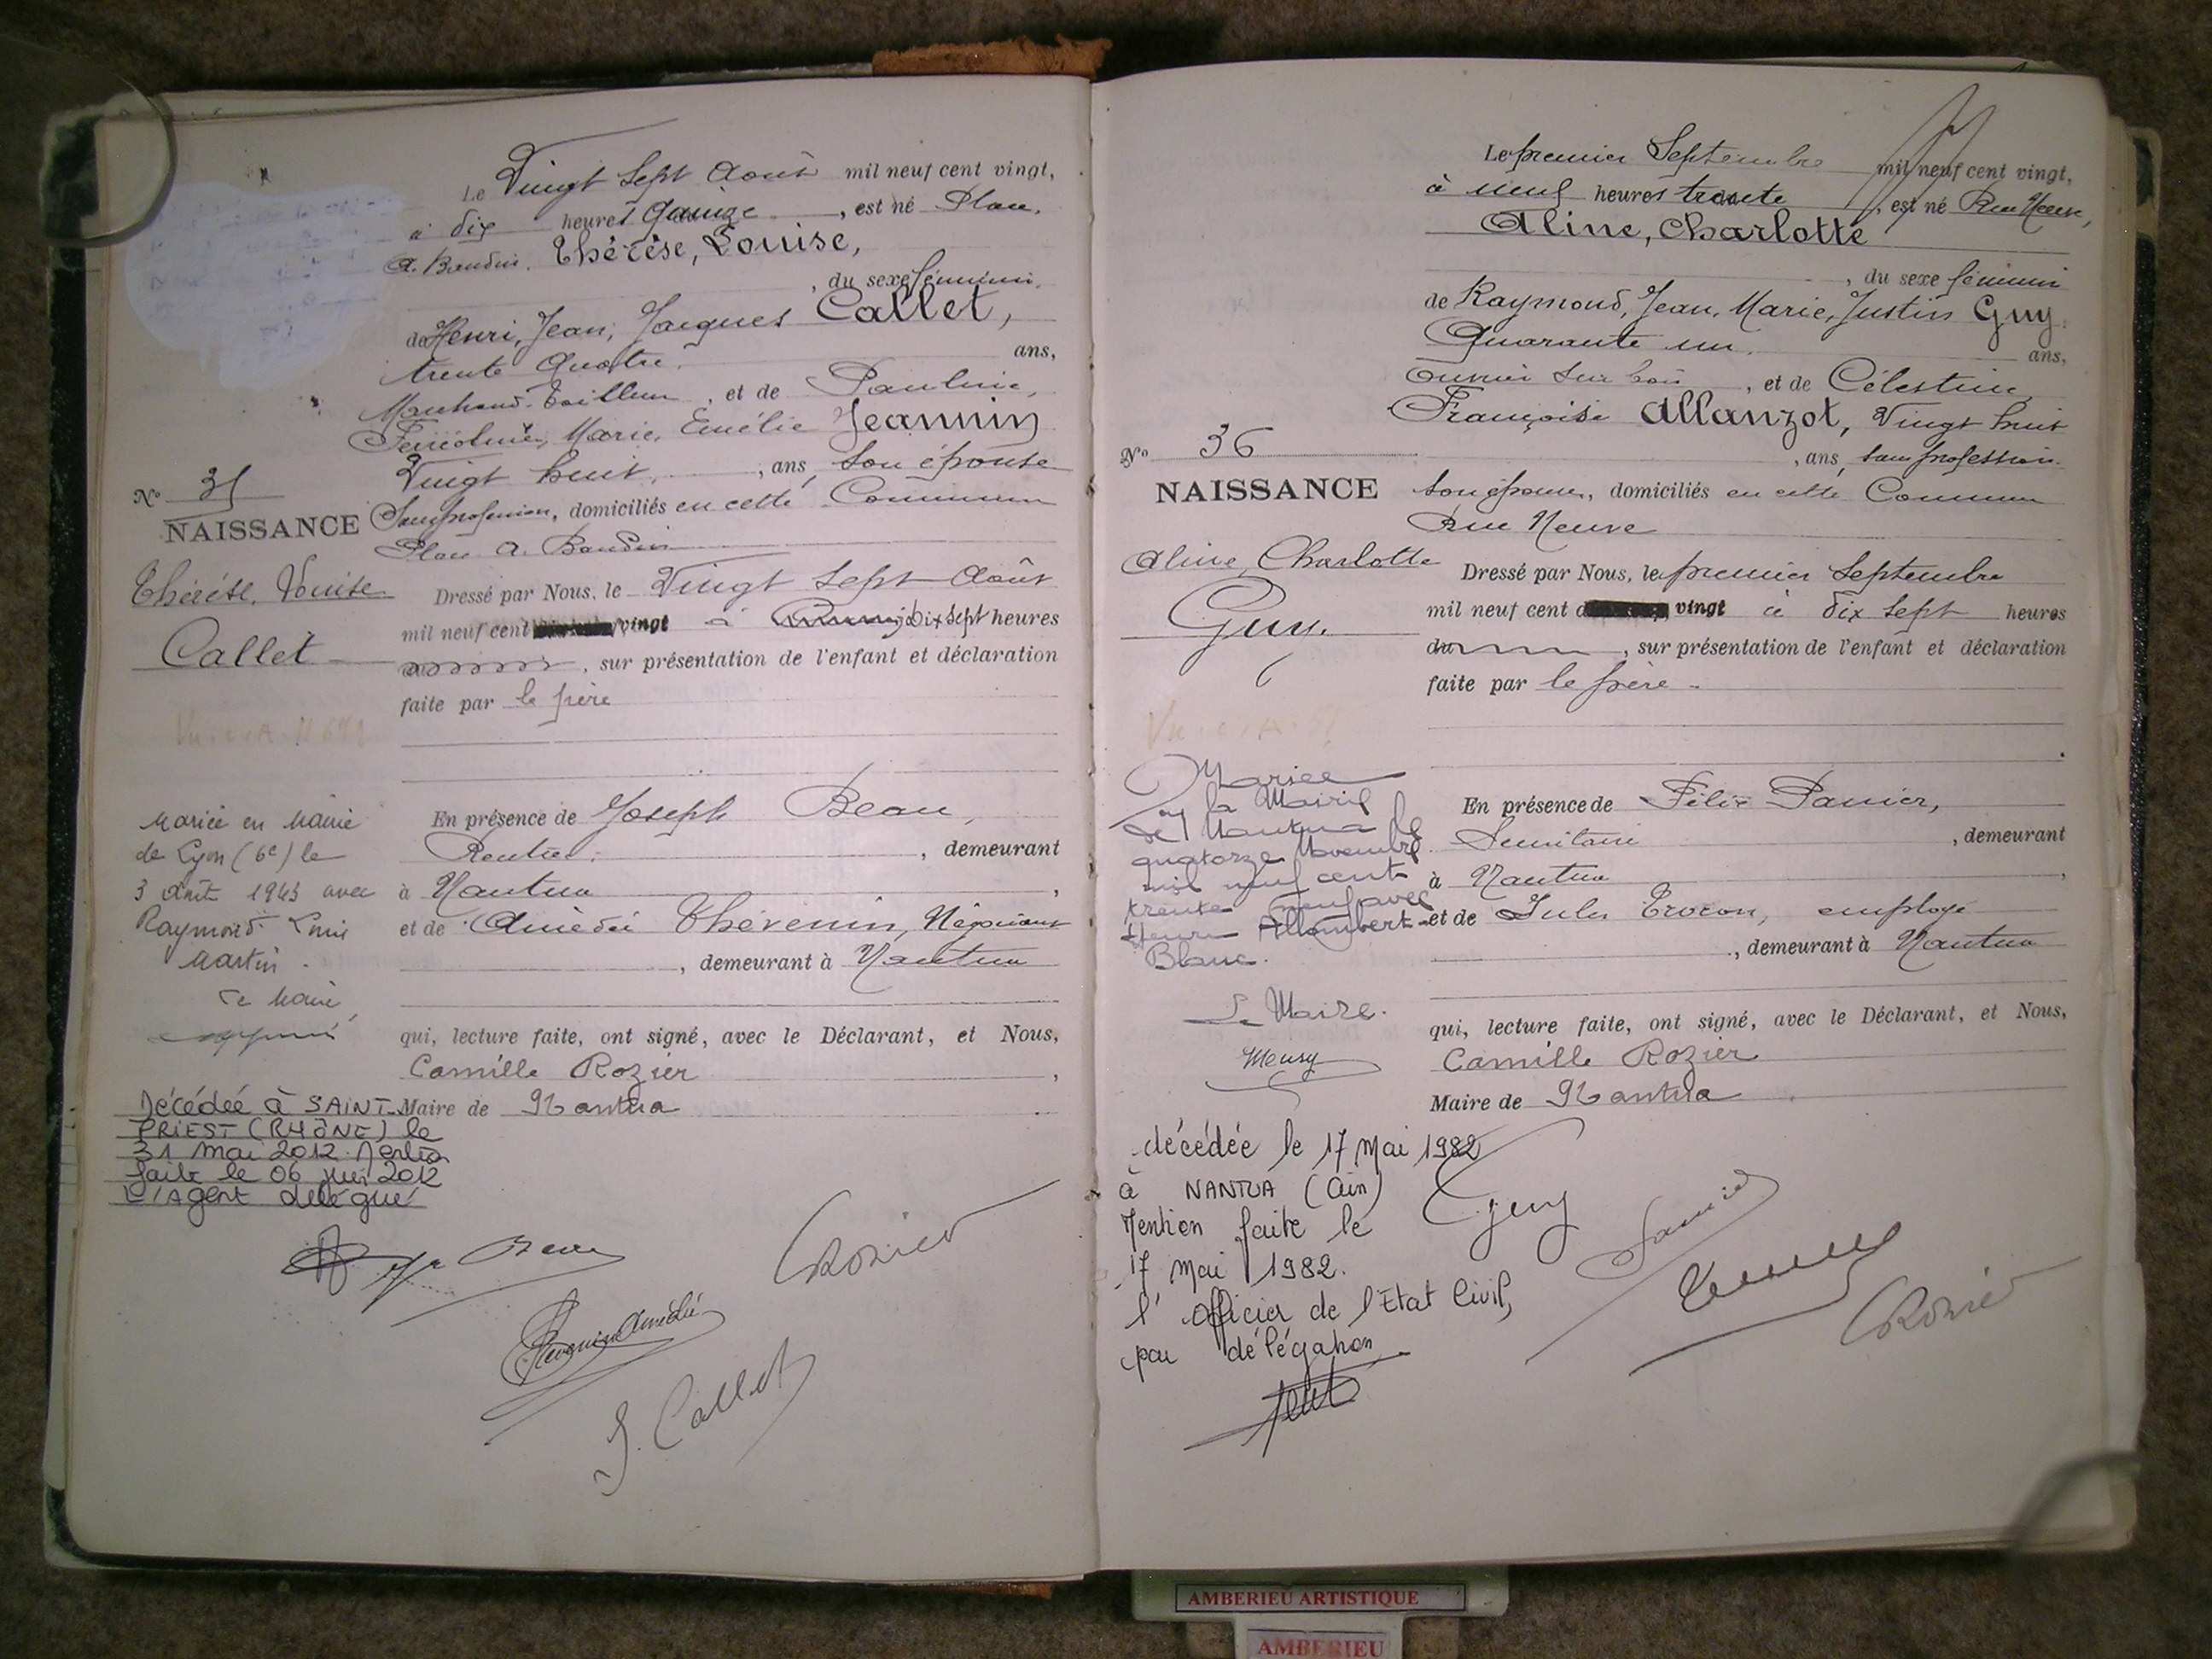 Le Vingt Sept Août mil neuf cent vingt,
à dix heures quinze, est né Place
A. Baudin. Thérèse, Louise,
, du sexe féminin.
de Henri, Jean, Jacques Callet,
trente quatre ans,
Marchand-Tailleur, et de Pauline,
Marie, Emélie Jeannin
Vingt huit, ans, son épouse
Sans profession, domiciliés en cette Commune
Place A. Baudin
N° 35
NAISSANCE
Thérèse, Louise
Callet
Dressé par Nous, le Vingt Sept Août
mil neuf cent vingt à dix sept heures
, sur présentation de l'enfant et déclaration
faite par le père
En présence de Joseph Beau,
Rentier, demeurant
à Nantua,
et de Amédée Thévenin, Négociant
, demeurant à Nantua
qui, lecture faite, ont signé, avec le Déclarant, et Nous,
Camille Rozier,
Maire de Nantua
Mariée en Mairie
de Lyon (6e) le
3 Août 1943 avec
Raymond Louis
Martin.
Le Maire,
Décédée à SAINT-
PRIEST (RHÔNE) le
31 mai 2012. Mention
faite le 06 juin 2012
L'Agent délégué
Beau
Rozier
Thevenin Amédée
J. Callet
Le premier Septembre mil neuf cent vingt,
à neuf heures trente, est né Rue Neuve,
Aline, Charlotte
, du sexe féminin
de Raymond, Jean, Marie, Justin Guy
Quarante un ans,
ouvrier sur bois, et de Célestine
Françoise Allanzot, Vingt huit
, ans, sans profession
son épouse, domiciliés en cette Commune
Rue Neuve
N° 36
NAISSANCE
Aline, Charlotte
Guy.
Dressé par Nous, le premier Septembre
mil neuf cent vingt à dix sept heures
du, sur présentation de l'enfant et déclaration
faite par le père
En présence de Félix Panier,
, demeurant
à Nantua,
et de Jules, employé
, demeurant à Nantua
qui, lecture faite, ont signé, avec le Déclarant, et Nous,
Camille Rozier
Maire de Nantua
Mariée
à la Mairie
de Nantua le
quatorze Novembre
mil neuf cent
trente neuf avec
Henri Allombert-
Blanc.
Le Maire.
Mensy
décédée le 17 Mai 1982
à NANTUA (Ain)
Mention faite le
17 mai 1982.
l'Officier de l'Etat Civil,
par délégation
Guy
Panier
Rozier
AMBERIEU ARTISTIQUE
AMBERIEU